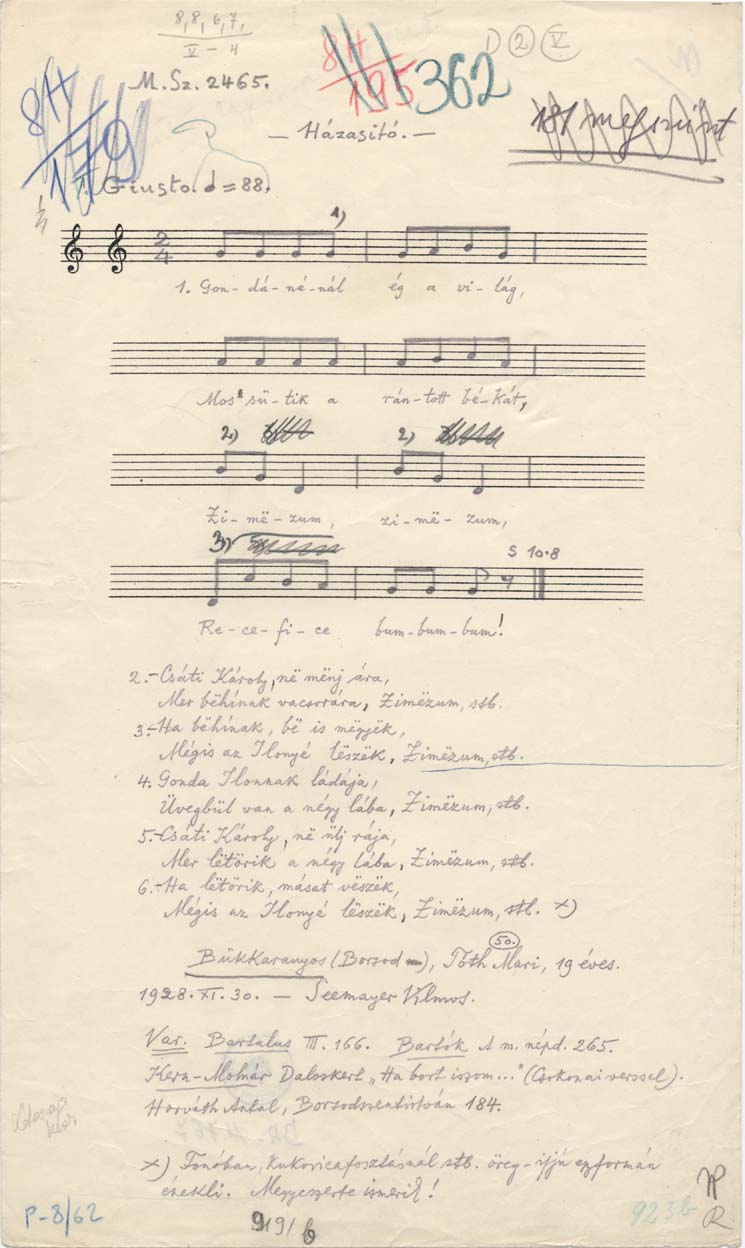 8, 8, 6, 7,
V – 4
8H
195
362
D 2 V
M. Sz. 2465.
8H
179
– Házasító. –
181 megszűnt
Giusto. = 88.
1)
2
4
1. Gon- dá- né- nál ég a vi- lág,
Most sü- tik a rán- tott bé- kát,
2) 2)
Zi- më- zum, zi- më- zum,
3)
S 10.8
Re- ce- fi- ce bum- bum- bum!
2. – Csáti Károly, në mënj ára,
Mer bëhínak vacsorára, Zimëzum, stb.
3. – Ha bëhínak, bë is mëgyëk,
Mégis az Ilonyé lëszëk, Zimëzum, stb.
4. Gonda Ilonnak ládája,
Üvegbül van a négy lába, Zimëzum, stb.
5. – Csáti Károly, në ülj rája,
Mer lëtörik a négy lába, Zimëzum, stb.
6. – Ha lëtörik, másat vëszëk,
Mégis az Ilonyé lëszëk, Zimëzum, stb. x)
50.
Bükkaranyos (Borsod –), Tóth Mari, 19 éves.
1928. XI. 30. – Seemayer Vilmos.
Var. Bartalus III. 166. Bartók A m. népd. 265.
Kern-Molnár Daloskert „Ha bort iszom..." (Csokonai verssel).
Horváth Antal, Borsodszentistván 184.
x) Fonóban, kukoricafosztásnál stb. öreg-ifjú egyformán
énekli. Megyeszerte ismerik!
P-8/62
919/b
923 b
R